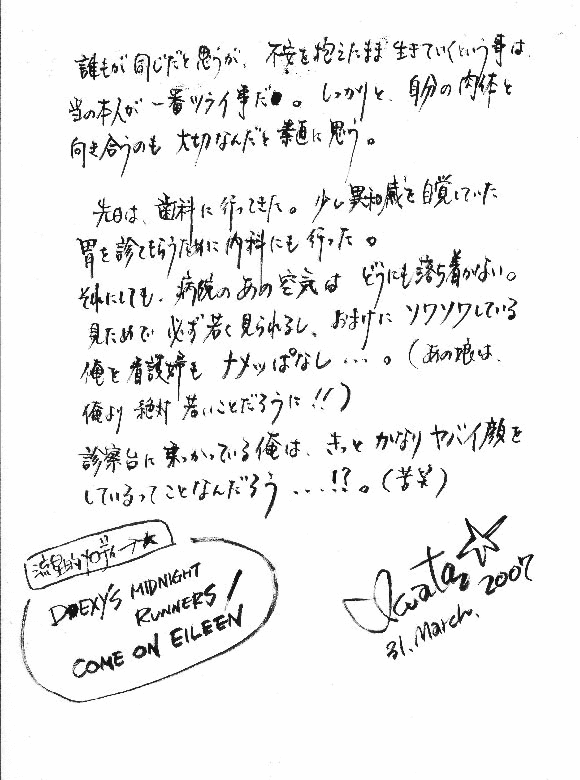 誰もが同じだと思うが、不安を抱えたまま生きていくという事は、
当の本人が一番ツライ事だ。しっかりと、自分の肉体と
向き合うのも大切なんだと素直に思う。
先日は、歯科に行ってきた。少し異和感を自覚していた
胃を診てもらうために内科にも行った。
それにしても、病院のあの空気はどうにも落ち着かない。
見ためで必ず若く見られるし、おまけにソワソワしている
俺を看護婦もナメッぱなし…。(あの娘は、
俺より絶対若いことだろうに!!)
診察台に乗っかっている俺は、きっとかなりヤバイ顔を
しているってことなんだろう…!?。(苦笑)
流星的メロディー→★
DEXY'S MIDNIGHT
RUNNERS/
COME ON EILEEN
2007
31. March.